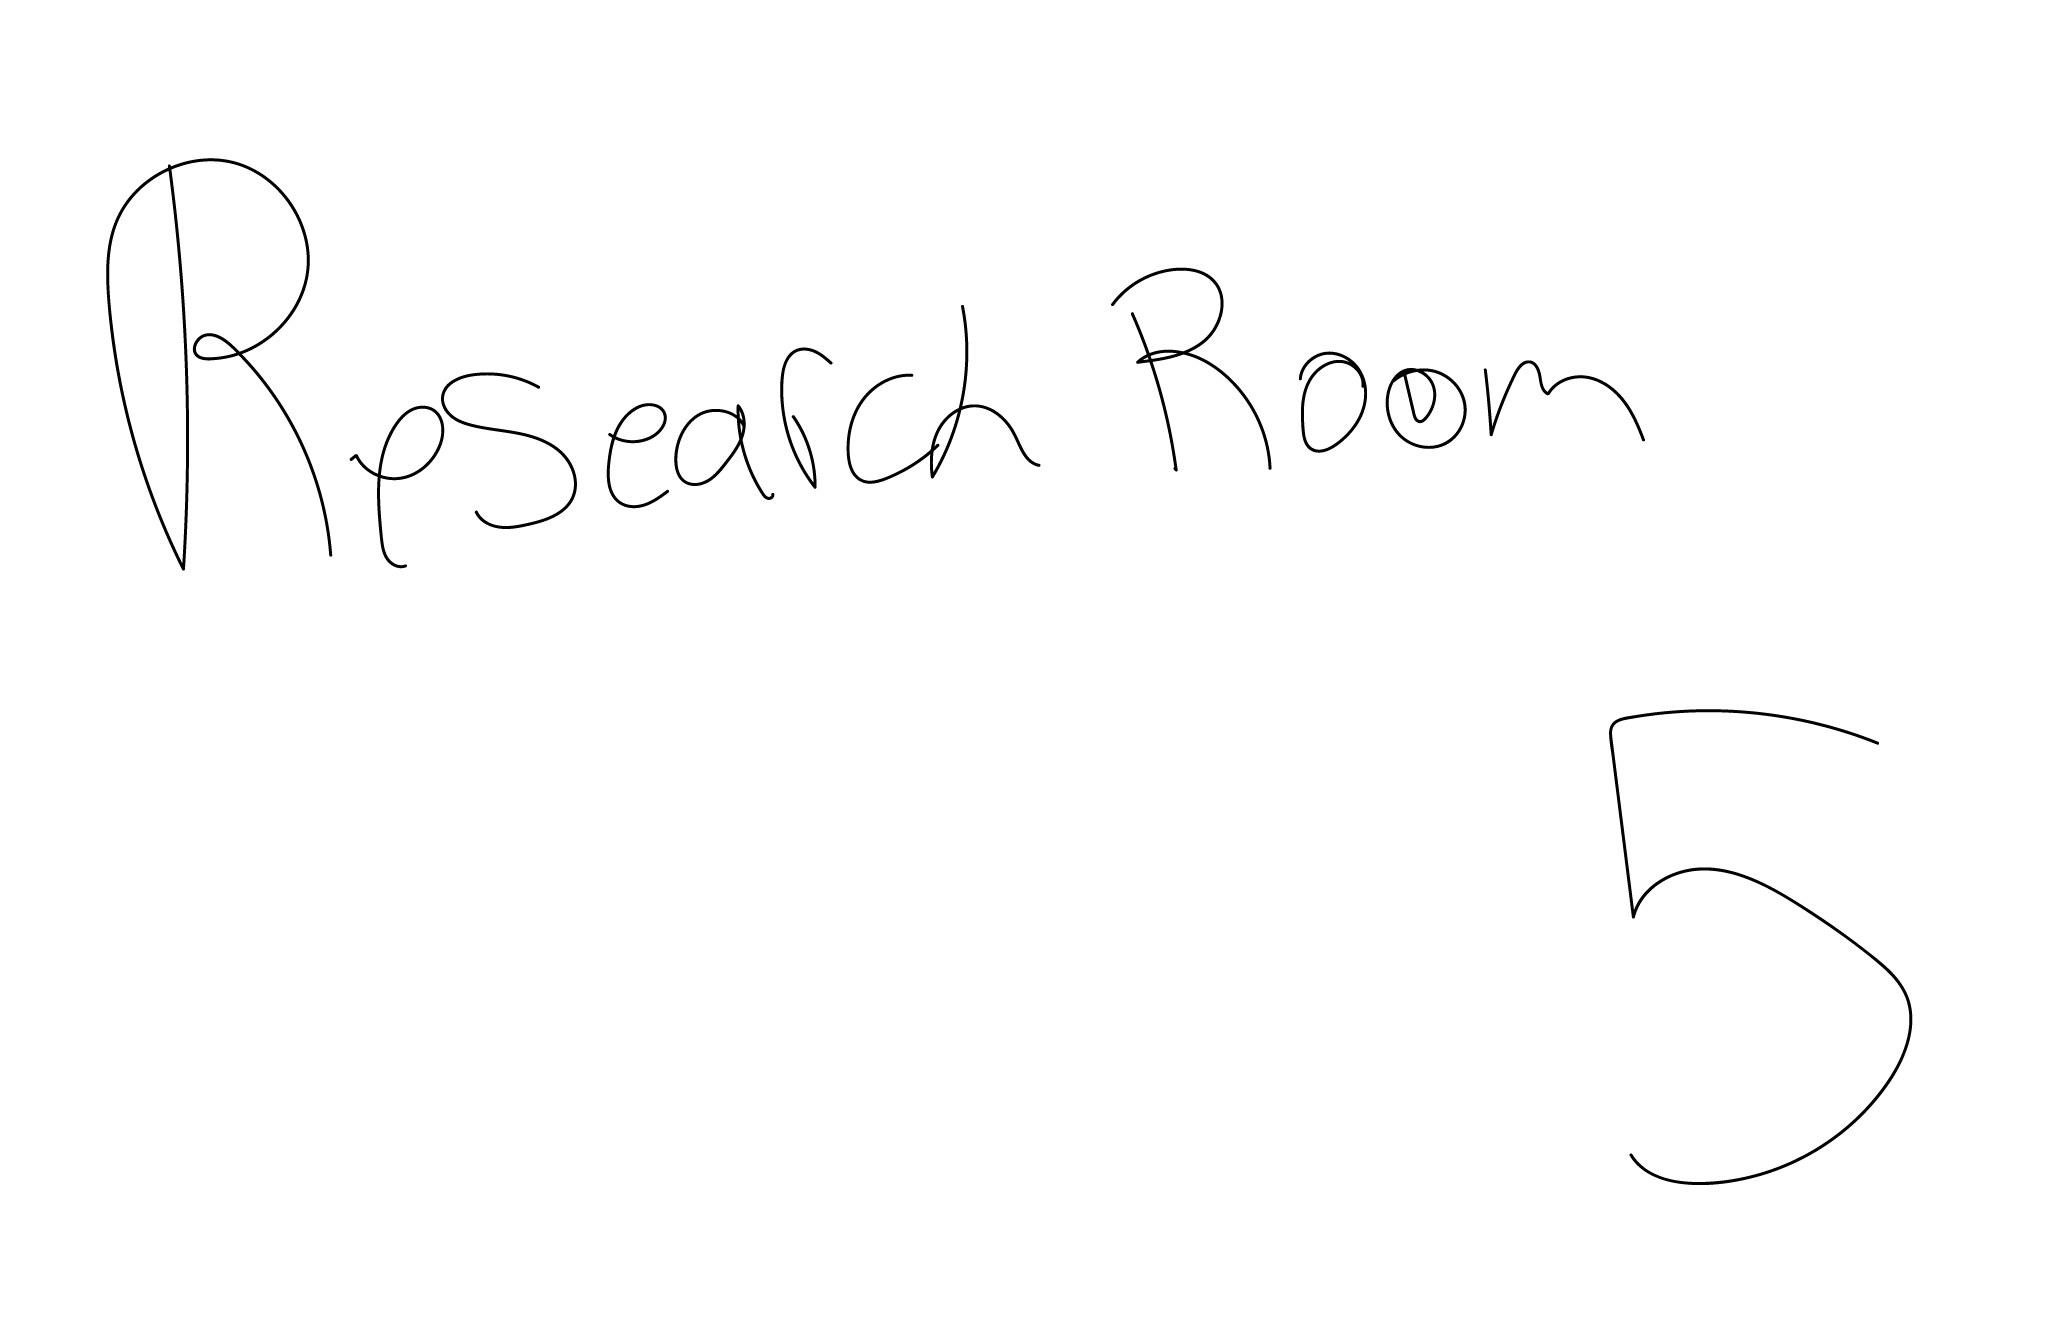 Research Room
5